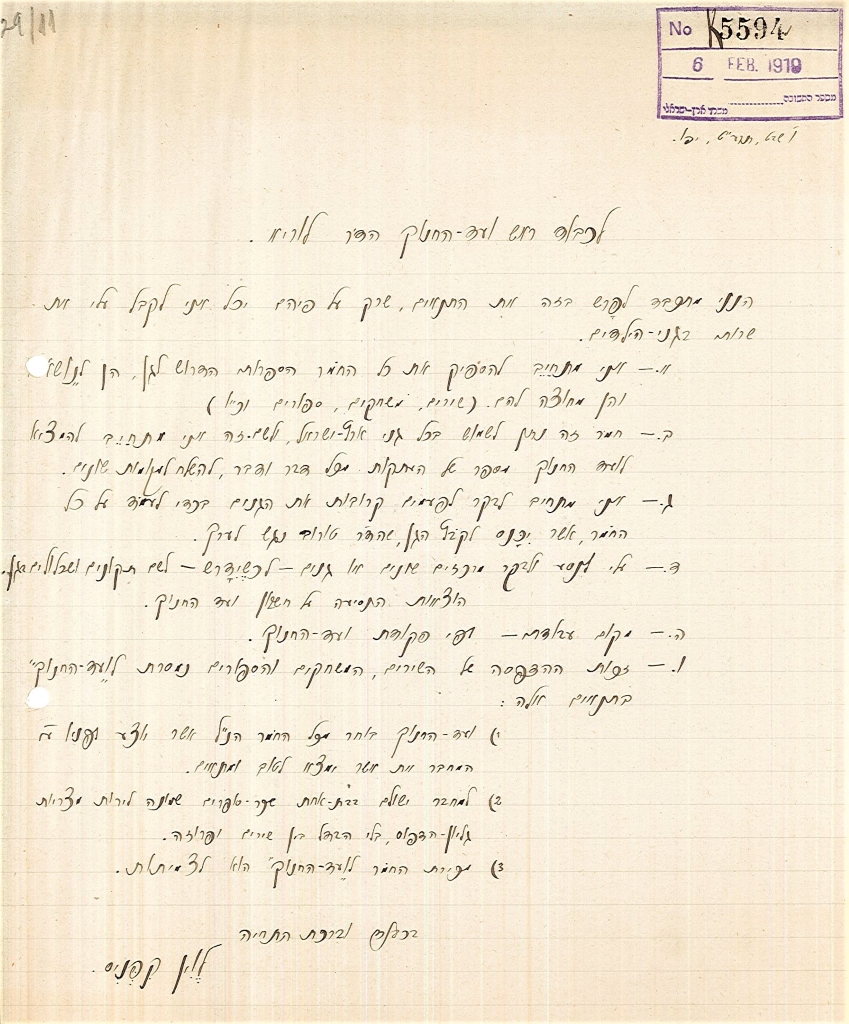 29/11
No K5594
6 FEB. 1919
מספר התשובה
משרד ארץ-ישראלי
ו' שבט, תרע"ט, יפו.
לכבוד ראש ועד-החנוך הד"ר לוריא.
הנני מתכבד לפרש בזה את התנאים, שרק על פיהם יכל אני לקבל עלי את
שרות בגני-הילדים.
א.— אני מתחיב להספיק את כל החמר הספרותי הדרוש לגן, הן לנושא
והן מחוצה להם. (שירים, משחקים, ספורים וכ"ו)
ב.— חמר זה נתן לשמוש בכל גני ארץ-ישראל, ולשם-זה אני מתחיב להמציא
לועד החנוך מספר של העתקות מכל דבר ודבר, להשלח למקומות שונים.
ג.— אני מתחיב לבקר לפעמים קרובות את הגנים בכדי לעמוד על כל
החמר, אשר יכנס לקבץ הגן, שהד"ר טורוב נגש לערך.
ד.— עלי לנסע ולבקר מרכזים שונים או גנים — לכשידרש — לשם תקונים ושכלולים בגן.
הוצאות הנסיעה על חשבון ועד החנוך.
ה.— מקום עבודתי — לפי פקודת ועד-החנוך.
ו.— זכות ההדפסה של השירים, המשחקים והספורים נמסרת ל"ועד-החנוך"
בתנאים אלה:
1) ועד-החנוך בוחר מכל החמר הנ"ל אשר אציע לפניו ע"י
המחבר את אשר ימצא לטוב ומתאים.
2) למחבר ישולם בבת-אחת שכר-סופרים שמונה לירות מצריות
גליון-הדפוס, בלי הבדל בין שירים ופרוזה.
3) מכירת החמר ל"ועד-החנוך" הוא לצמיתות.
בכבוד וברכת התחיה
לוין קפניס.